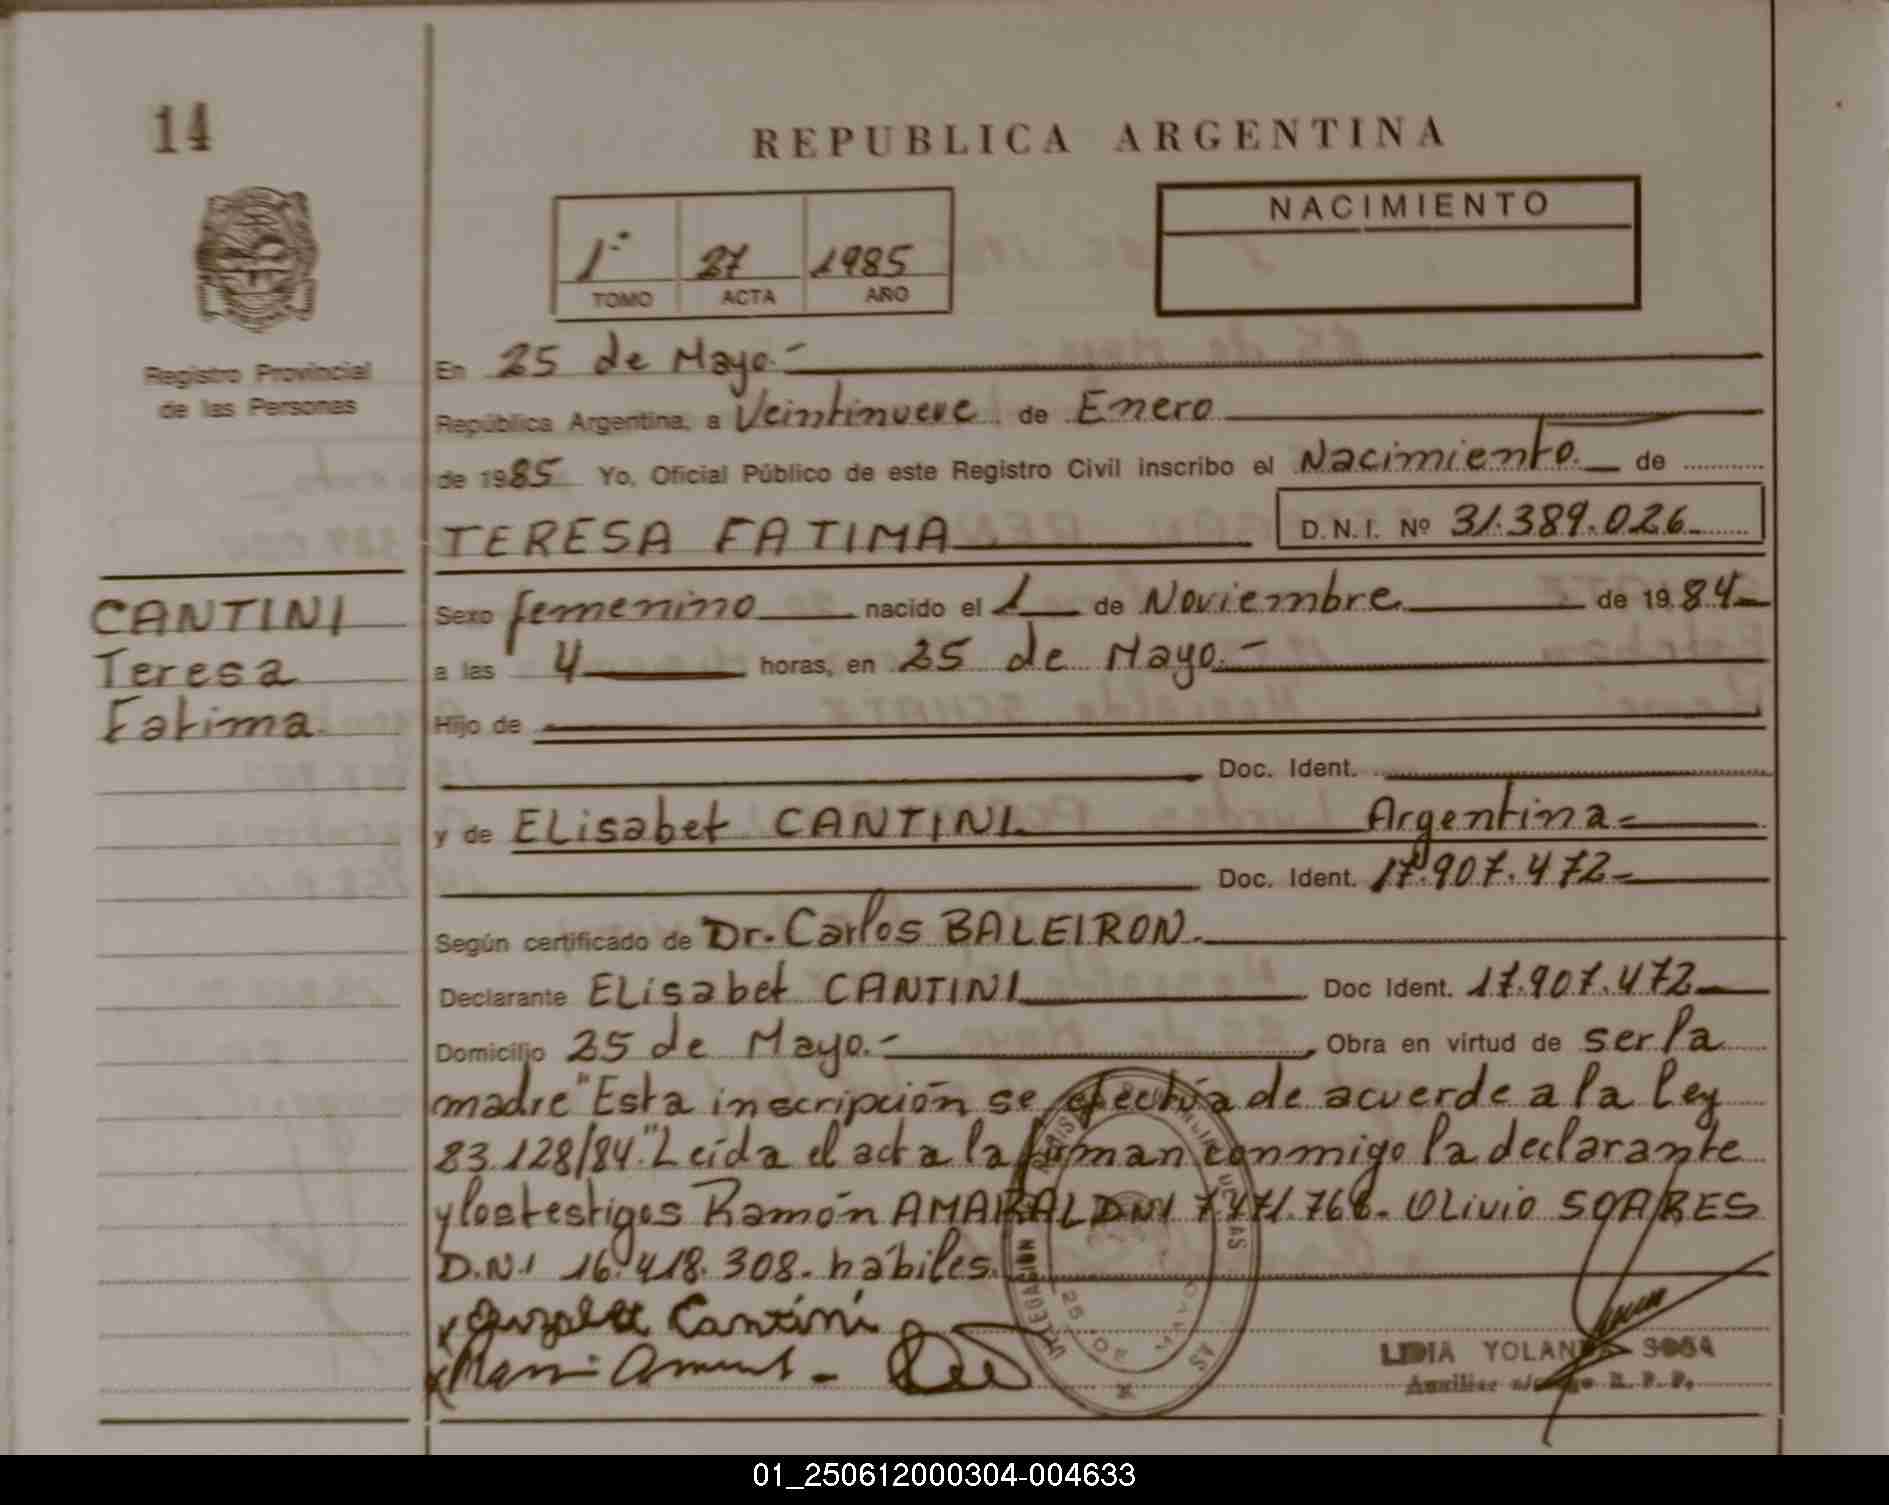 14
REPUBLICA ARGENTINA
1º 27 1985
TOMO ACTA AÑO
NACIMIENTO
Registro Provincial
de las Personas
En 25 de Mayo.-
República Argentina, a Veintinueve de Enero
de 1985 Yo, Oficial Público de este Registro Civil inscribo el Nacimiento. de
TERESA FATIMA D.N.I. Nº 31.389.026.
CANTINI
Teresa
Fatima.
Sexo femenino nacido el 1 de Noviembre. de 19.84-
a las 4 horas, en 25 de Mayo.-
Hijo de
Doc. Ident.
y de ELisabet CANTINI. Argentina-
Doc. Ident. 17.907.472-
Según certificado de Dr. Carlos BALEIRON.
Declarante ELisabet CANTINI Doc Ident. 17.907.472
Domicilio 25 de Mayo.- Obra en virtud de ser la
madre "Esta inscripción se efectúa de acuerde a la Ley
23.128/84." Leída el acta la firman conmigo la declarante
y los testigos Ramón AMARAL DNI 7.471.768. OLivio SOARES
D.N.I 16.418.308. hábiles.
Cantini
LIDIA YOLANDA SOSA
Auxiliar R. P. P.
DELEGACION
01_250612000304-004633